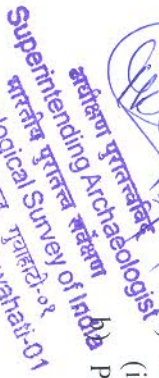 अधीक्षण पुरातत्वविद्
Superintending Archaeologist
भारतीय पुरातत्व सर्वेक्षण
logical Survey of India
गुवाहाटी-०१
wahati-01
(i
b) P